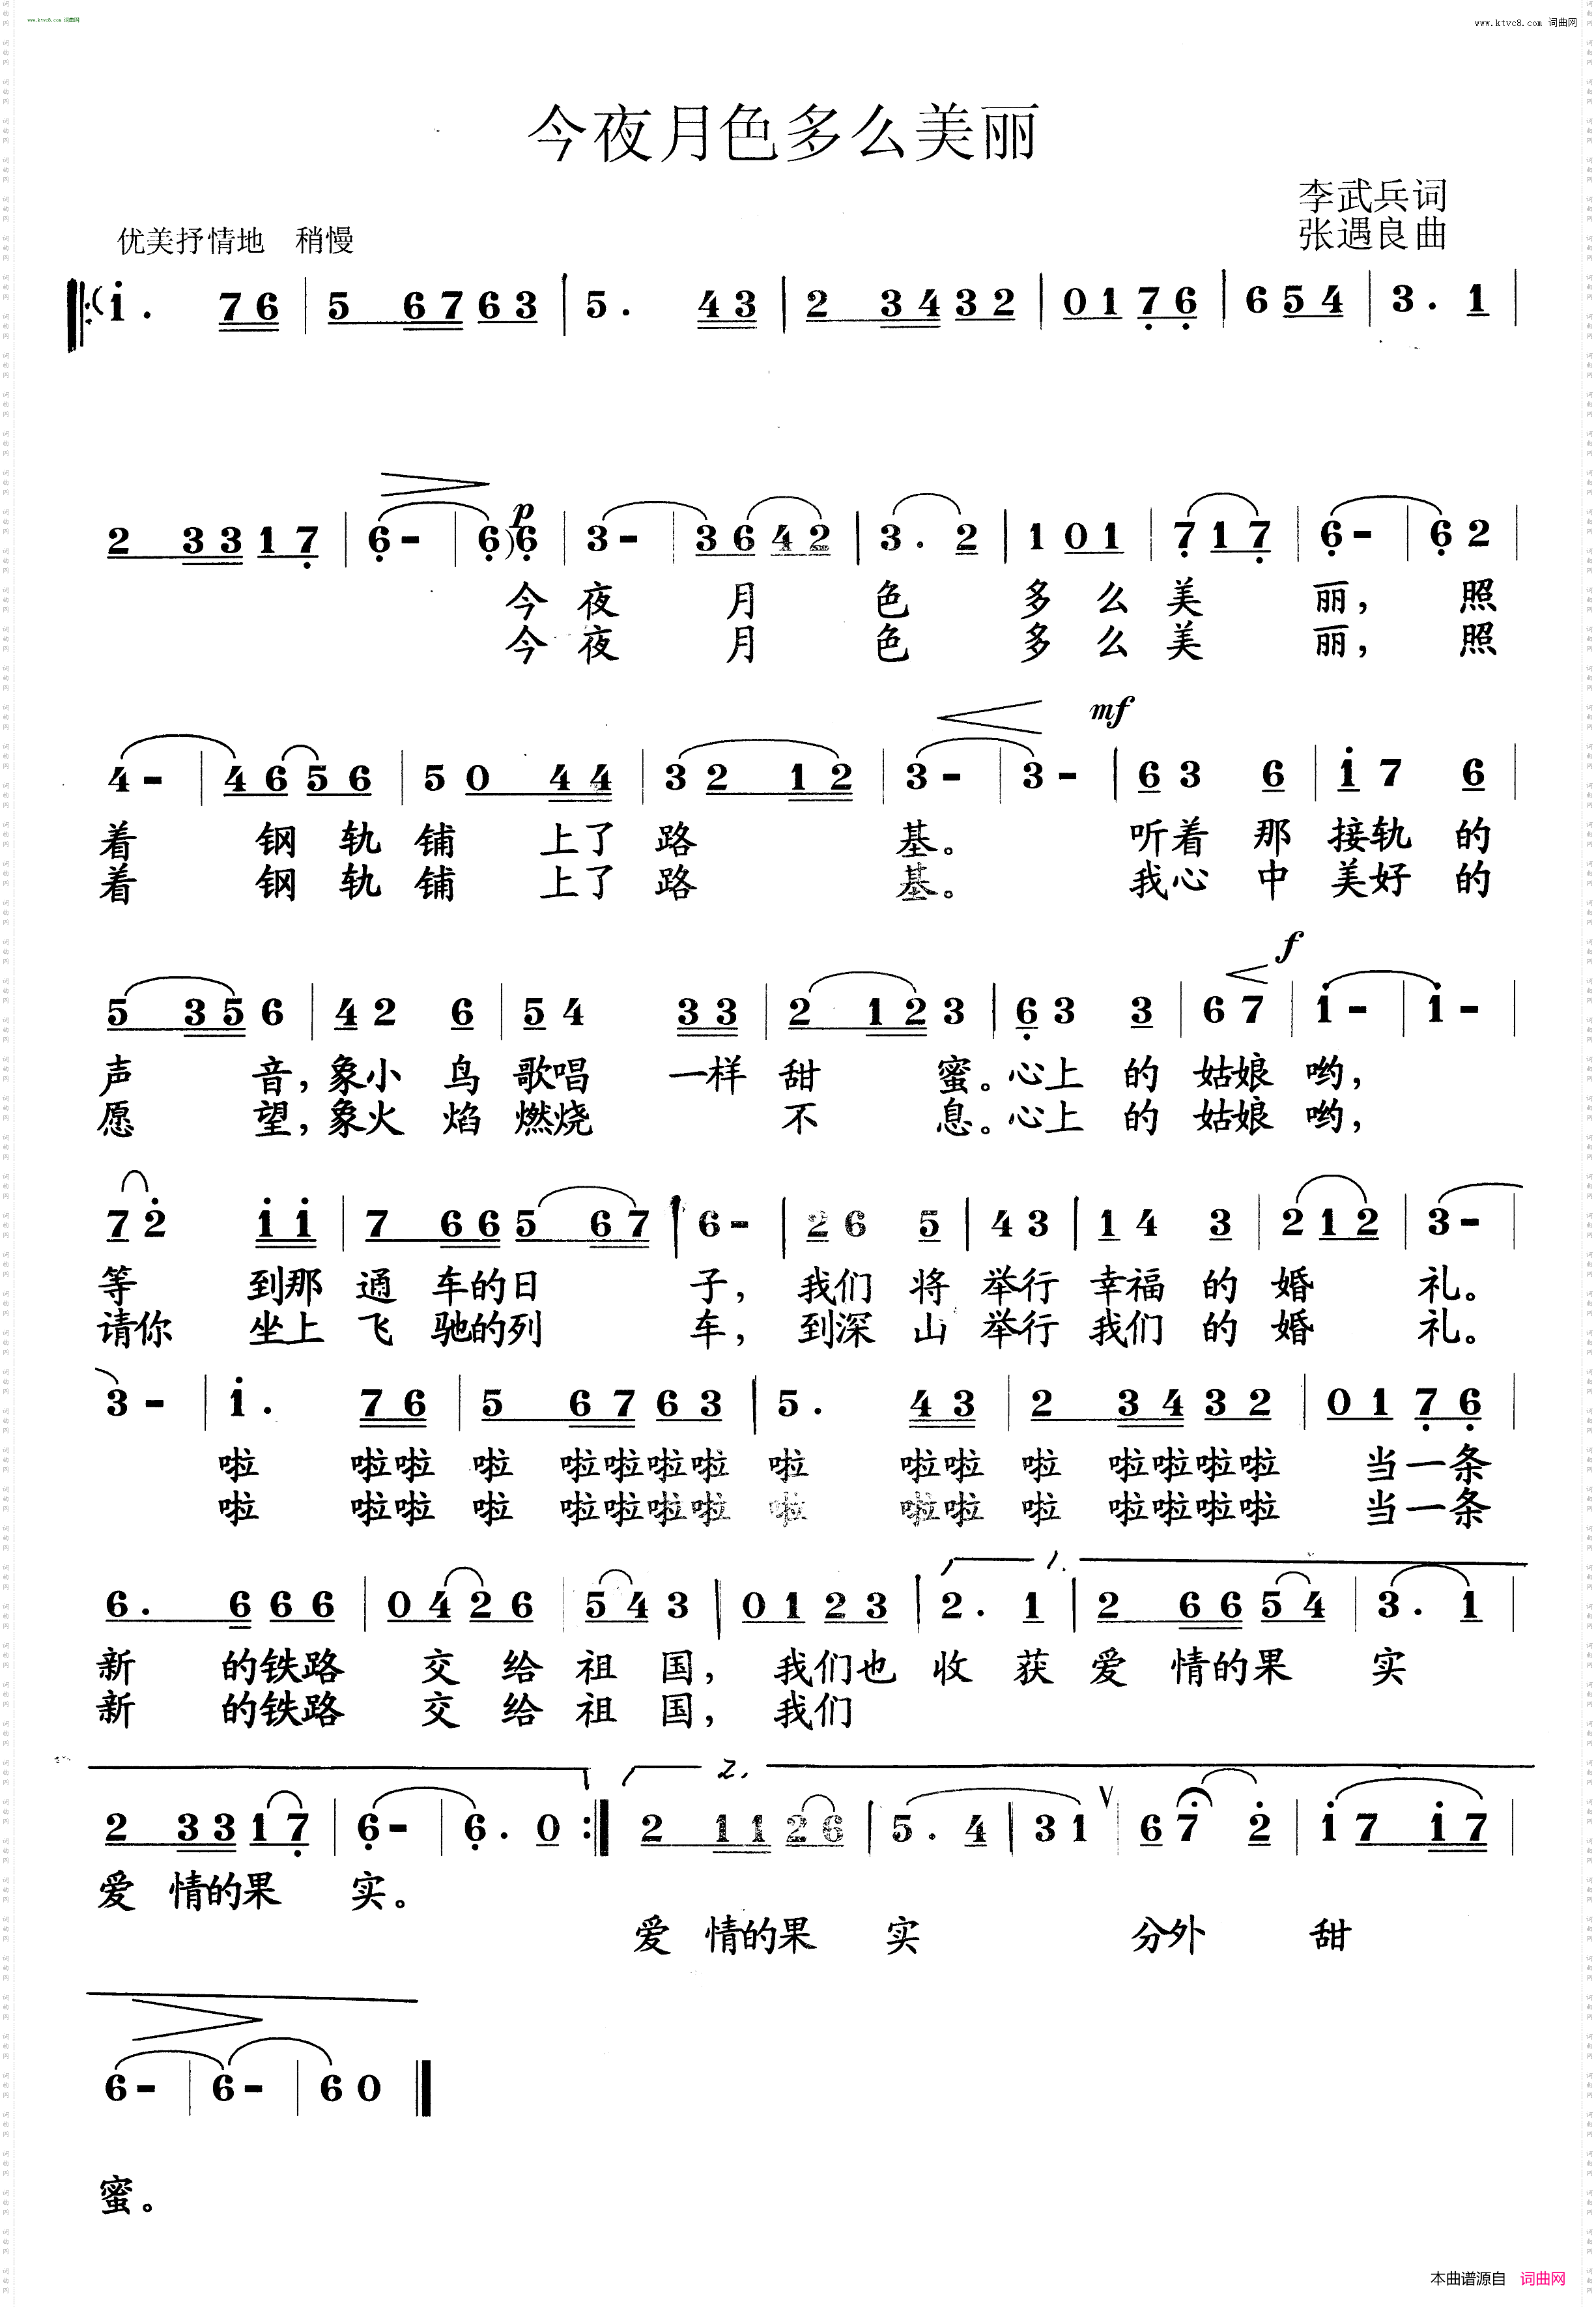 www.ktvc8.com 词曲网
www.ktvc8.com 词曲网
今夜月色多么美丽
李武兵词
优美抒情地 稍慢
张遇良曲
(i. 76 | 5 6763 | 5. 43 | 2 3432 | 0176 | 654 | 3. 1 |
p
2 3317 | 6- | 6)6 | 3- | 3642 | 3. 2 | 101 | 717 | 6- | 62 |
今夜 月 色 多么美 丽, 照
今夜 月 色 多么美 丽, 照
mf
4- | 4656 | 50 44 | 32 12 | 3- | 3- | 63 6 | i7 6 |
着 钢轨铺 上了路 基。 听着那接轨的
着 钢轨铺 上了路 基。 我心中美好的
f
5 356 | 42 6 | 54 33 | 2 123 | 63 3 | 67 | i- | i- |
声 音,象小鸟歌唱 一样甜 蜜。心上的姑娘哟,
愿 望,象火焰燃烧 不 息。心上的姑娘哟,
72 ii | 7 665 67 | 6- | 26 5 | 43 | 14 3 | 212 | 3- |
等 到那通车的日 子, 我们将举行幸福的婚 礼。
请你 坐上飞驰的列 车, 到深山举行我们的婚 礼。
3- | i. 76 | 5 6763 | 5. 43 | 2 3432 | 0176 |
啦 啦啦啦 啦啦啦啦啦 啦啦啦 啦啦啦啦 当一条
啦 啦啦啦 啦啦啦啦啦 啦啦啦 啦啦啦啦 当一条
1.
6. 666 | 0426 | 543 | 0123 | 2. 1 | 2 6654 | 3. 1 |
新 的铁路 交给祖国, 我们也收获爱情的果 实
新 的铁路 交给祖国, 我们
2.
2 3317 | 6- | 6. 0 :| 2 1126 | 5. 4 | 31 V | 67 2 | i7 i7 |
爱情的果 实。
爱情的果 实 分外 甜
6- | 6- | 60 ‖
蜜。
本曲谱源自 词曲网